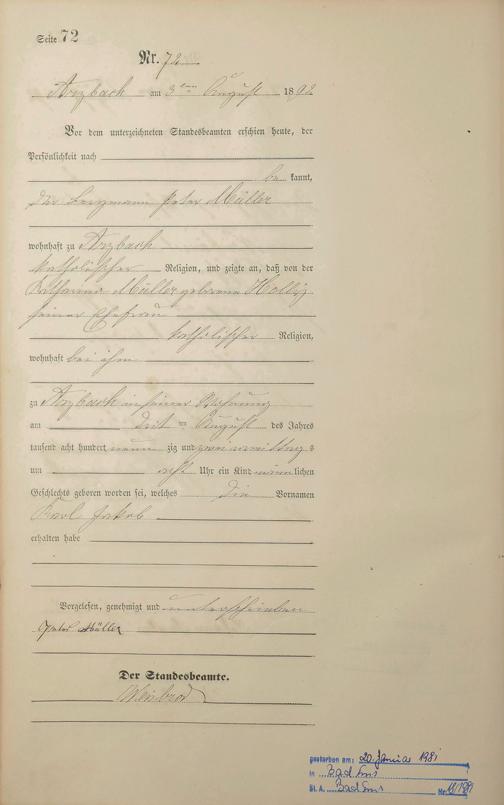 Seite 72
Nr. 72
Arzbach am 3ten August 1892
Vor dem unterzeichneten Standesbeamten erschien heute, der
Persönlichkeit nach
be kannt,
der Bergmann Peter Müller
wohnhaft zu Arzbach
katholischer Religion, und zeigte an, daß von der
Katharina Müller geborene
seiner Ehefrau
katholischer Religion,
wohnhaft bei ihm
zu Arzbach in seiner Wohnung
am August des Jahres
tausend acht hundert neun zig und zwei
um acht Uhr ein Kind männlichen
Geschlechts geboren worden sei, welches die Vornamen
Karl Jakob
erhalten habe
Vorgelesen, genehmigt und unterschrieben
Peter Müller
Der Standesbeamte.
gestorben am: 20. Januar 1981
in Bad Ems
St. A. Bad Ems Nr.